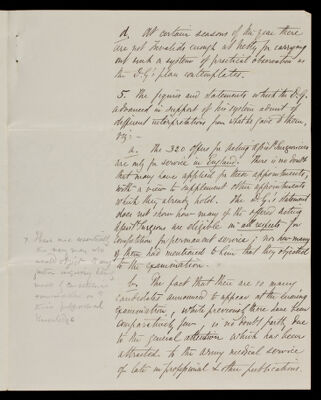 d. At certain seasons of the year there
are not Invalids enough at Netley for carrying
out such a system of practical observation as
the D.G's plan contemplates.
5. The figures and statements which the D.G.
advances in support of his system admit of
different interpretations from what he gives to them,
viz:-
a. The 320 offers for Acting Asst. Surgeoncies
are only for service in England. There is no doubt
that many have applied for these appointments,
with a view to supplement other appointments
which they already hold. The D.G's statement
does not show how many of the offered acting
Asst. Surgeons are eligible in all respects for
competition for permanent service; nor how many
of them had mentioned to him that they objected
to the examination.
b. The fact that there are so many
candidates announced to appear at the ensuing
examination, while previously there have been
comparatively few, is no doubt partly due
to the general attention which has been
attracted to the Army medical service
of late in professional & other publications.
There are
many men who
would object to any
being
made
examination
their professional
knowledge